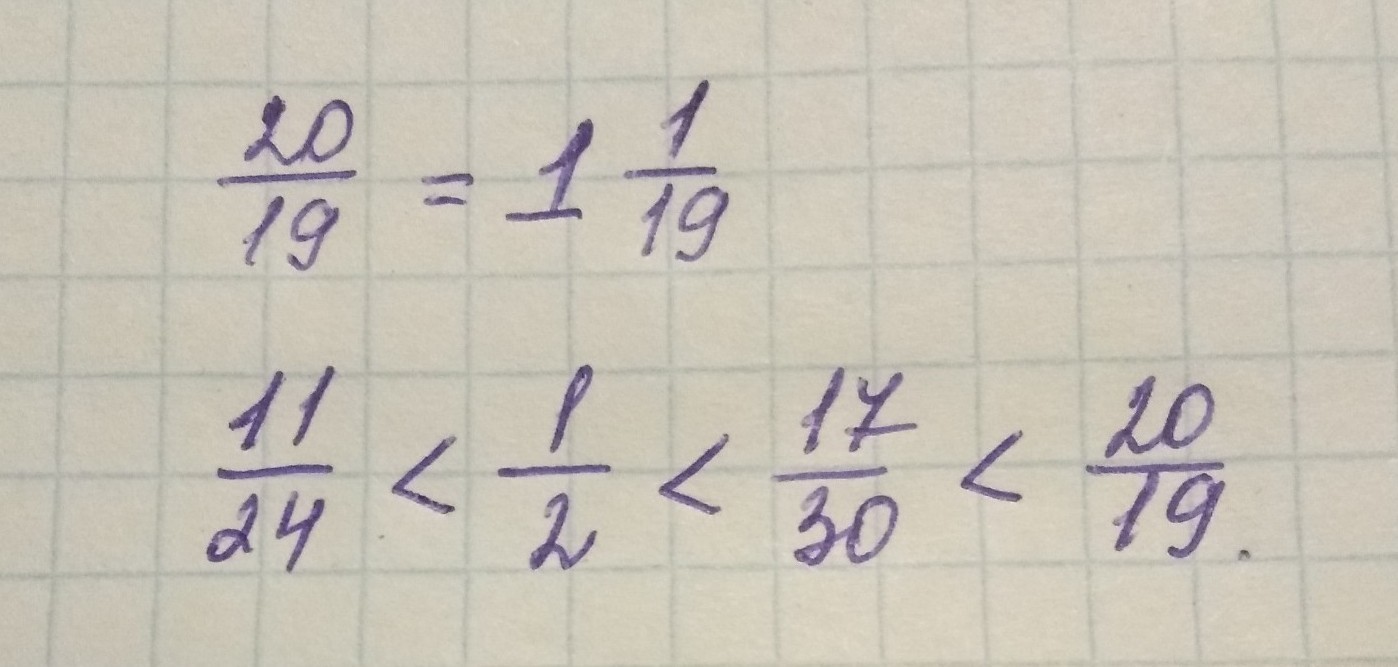 20/19 = 1 1/19
11/24 < 1/2 < 17/30 < 20/19.